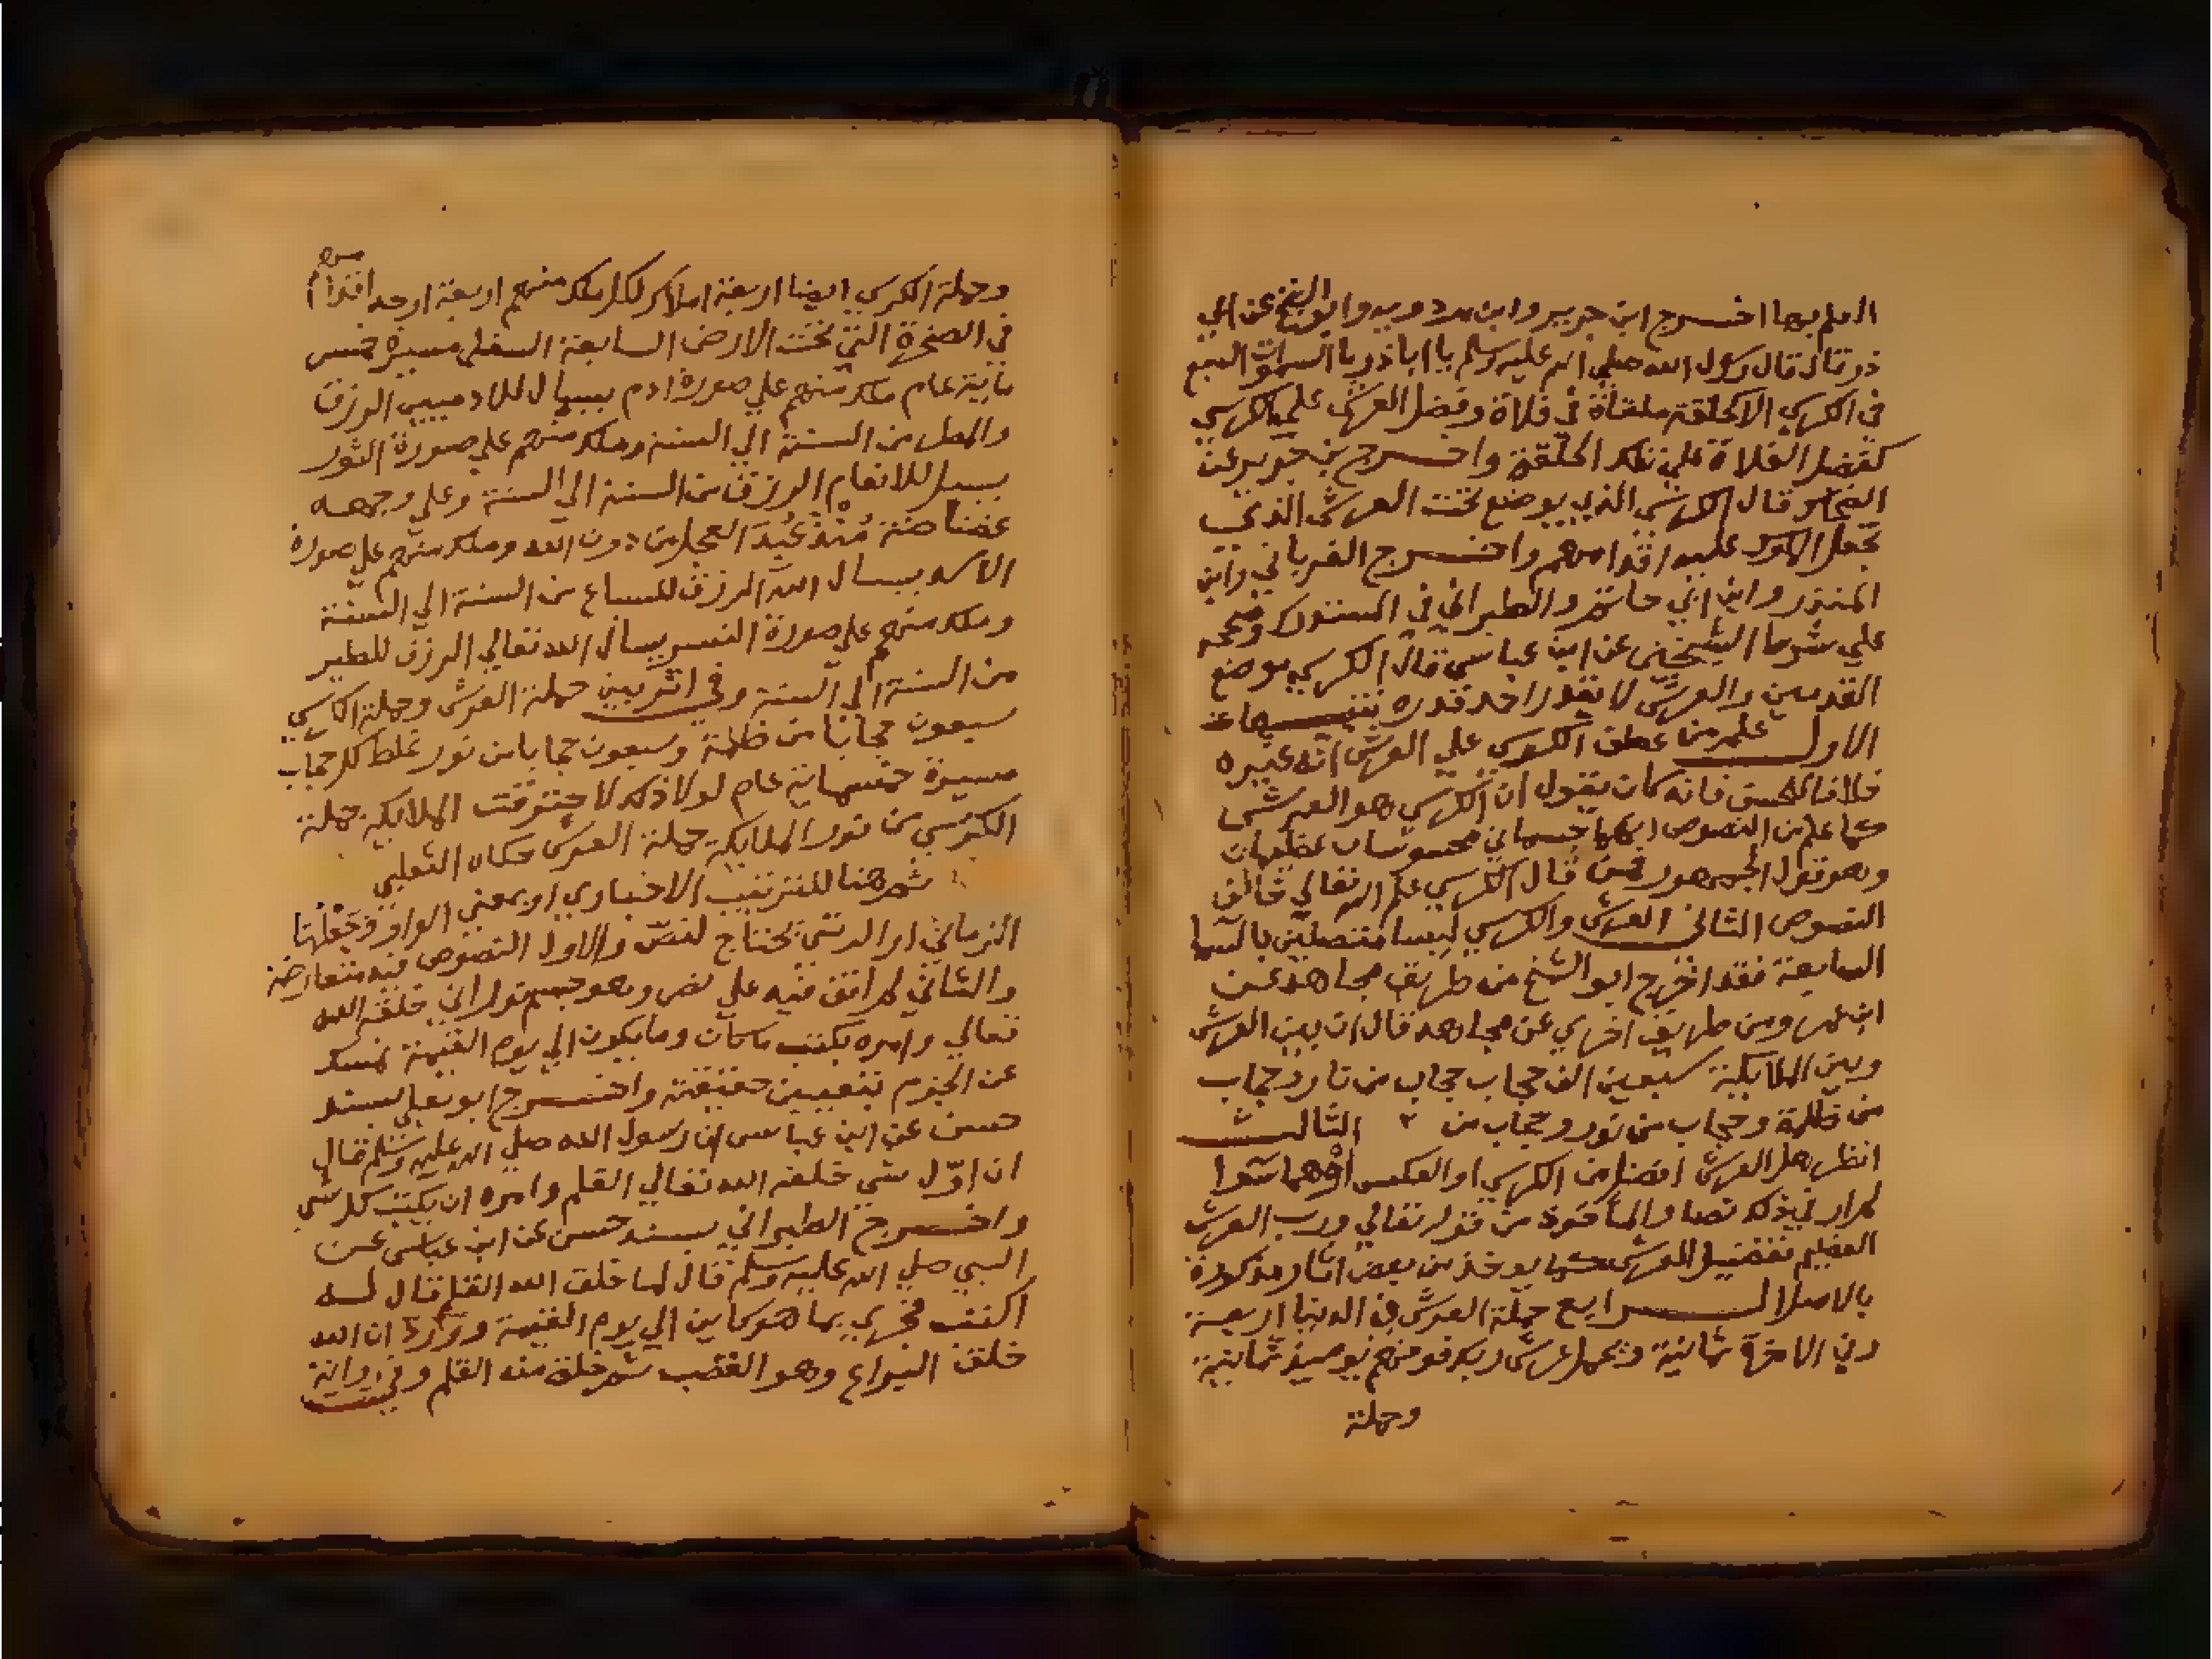 العلم بها اخرج ابن جرير وابن مردويه وابو الشيخ عن ابي
ذر قال قال رسول الله صلي الله عليه وسلم يا ابا ذر ما السموات السبع
في الكرسي الا كحلقة ملقاة في فلاة وفضل العرش علي الكرسي
كفضل الفلاة علي تلك الحلقة واخرج بن جرير عن
الضحاك قال الكرسي الذي يوضع تحت العرش الذي
تجعل الملوك عليه اقدامهم واخرج الفريابي وابن
المنذر وابن ابي حاتم والطبراني في المستدرك وصححه
علي شرط الشيخين عن ابن عباس قال الكرسي موضع
القدمين والعرش لا يقدر احد قدره تنبيهات
الاول علم من عطف الكرسي علي العرش انه غيره
خلافا للحسن فانه كان يقول ان الكرسي هو العرش
كما علم من النصوص انهما جسماني محسوسات عظيمات
وهو قول الجمهور فمن قال الكرسي علم الله تعالي خالف
النصوص الثاني العرش والكرسي ليسا متصلين بالسما
السابعة فقد اخرج ابو الشيخ من طريق مجاهد عن
ابن عمر ومن طريق اخري عن مجاهد قال ان بين العرش
وبين الملايكة سبعين الف حجاب حجاب من نار وحجاب
من ظلمة وحجاب من نور وحجاب من ٢ الثالث
انظر هل العرش افضل من الكرسي او العكس او هما سوا
لم ار في ذلك نصا والمأخوذ من قوله تعالي ورب العرش
العظيم تفضيل العرش كما يوخذ من بعض اثار مذكورة
بالاصل الرابع حملة العرش في الدنيا اربعة
وفي الاخرة ثمانية ويحمل عرش ربك فوقهم يوميذ ثمانية
وحملة
وحملة الكرسي ايضا اربعة املاك لكل ملك منهم اربعة اوجه اقدامهم
في الصخرة التي تحت الارض السابعة السفلي مسيرة خمس
ماية عام ملك منهم علي صورة ادم يسال للادميين الرزق
والمطر من السنة الي السنة وملك منهم علي صورة الثور
يسال للانعام الرزق من السنة الي السنة وعلي وجهه
غضاضة مُنْذُ عُبِدَ العجل من دون الله وملك منهم علي صورة
الاسد يسال الله الرزق للسباع من السنة الي السنة
وملك منهم علي صورة النسر يسال الله تعالي الرزق للطير
من السنة الي السنة وفي اثر بين حملة العرش وحملة الكرسي
سبعون حجابا من ظلمة وسبعون حجابا من نور غلظ كل حجاب
مسيرة خمسماية عام لولا ذلك لاحترقت الملايكة حملة
الكرسي من نور الملايكة حملة العرش حكاه الثعلبي
ثم هنا للترتيب الاخباري او بمعني الواو وجعلها
الزماني او الرتبي يحتاج لنص والاول النصوص فيه متعارضة
والثاني لم اقف فيه علي نص وهو جسم نوراني خلقه الله
تعالي وامره بكتب ما كان وما يكون الي يوم القيمة نمسك
عن الجزم بتعيين حقيقته واخرج ابو يعلي بسند
حسن عن ابن عباس ان رسول الله صلي الله عليه وسلم قال
ان اوّل شي خلقه الله تعالي القلم وامره ان يكتب كل شي
واخرج الطبراني بسند حسن عن ابن عباس عن
النبي صلي الله عليه وسلم قال لما خلق الله القلم قال له
اكتب فجري بما هو كاين الي يوم القيمة وورد ان الله
خلق اليراع وهو القصب ثم خلق منه القلم وفي رواية